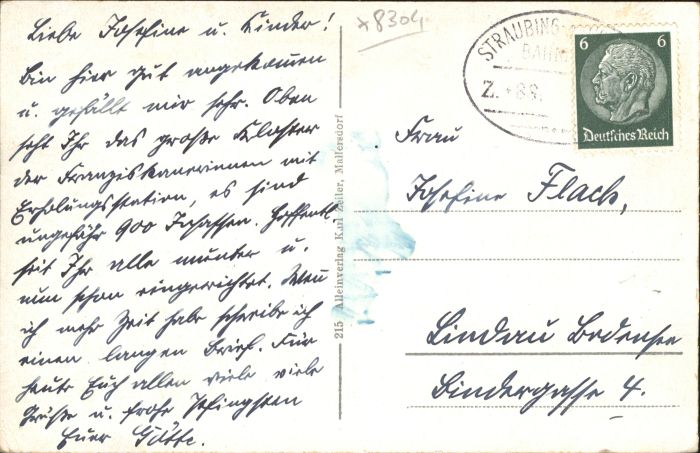 Liebe Josefine u. Kinder!
Bin hier gut angekommen
u. gefällt mir sehr. Oben
seht Ihr das große Kloster
der Franziskanerinnen mit
Erholungsstation, es sind
ungefähr 900 Insassen. Hoffentl.
seit Ihr alle munter u.
nun schon eingerichtet. Wen
ich mehr Zeit habe schreibe ich
einen langen Brief. Für
heute Euch allen viele viele
Grüße u. frohe Pfingsten
Euer Götte.
x8304
215 Alleinverlag Karl Zeller, Mallersdorf
STRAUBING-
BAHN
Z. 89.
6 6
Deutsches Reich
Frau
Josefine Flach,
Lindau Bodensee
Bindergasse 4.